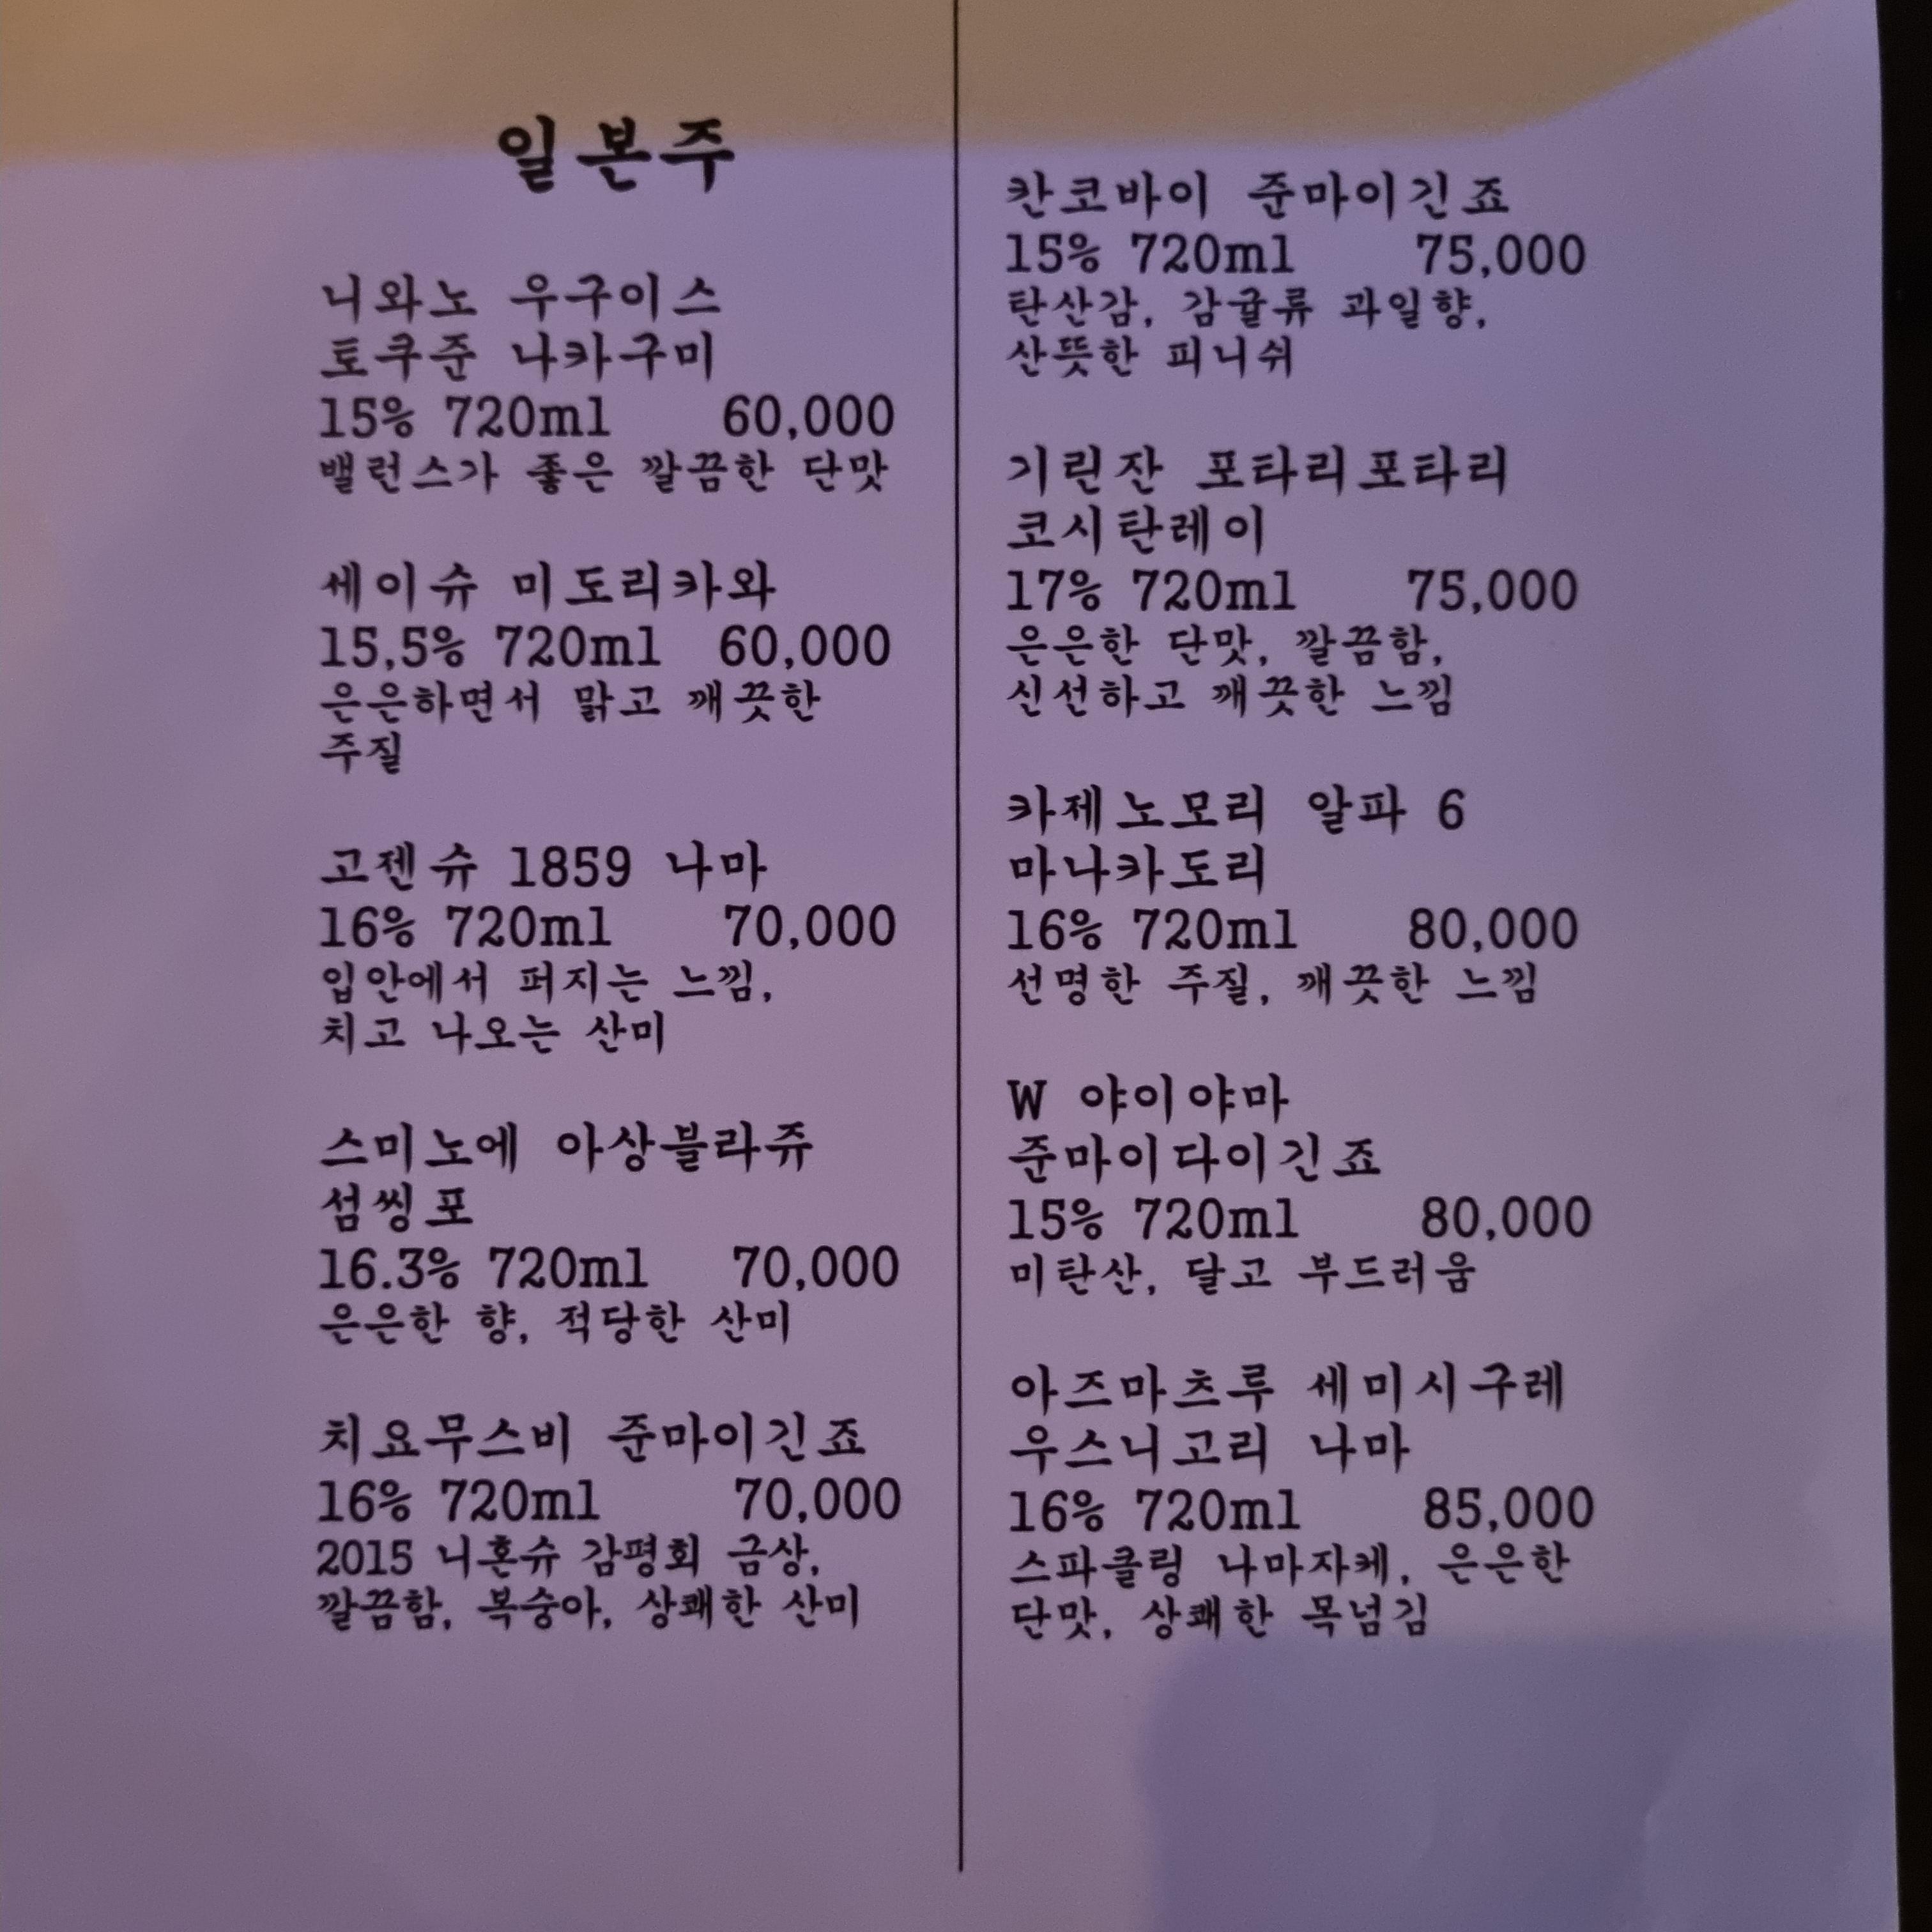 일본주
니와노 우구이스
토쿠준 나카구미
15% 720ml 60,000
밸런스가 좋은 깔끔한 단맛
세이슈 미도리카와
15,5% 720ml 60,000
은은하면서 맑고 깨끗한
주질
고젠슈 1859 나마
16% 720ml 70,000
입안에서 퍼지는 느낌,
치고 나오는 산미
스미노에 아상블라쥬
섬씽포
16.3% 720ml 70,000
은은한 향, 적당한 산미
치요무스비 준마이긴죠
16% 720ml 70,000
2015 니혼슈 감평회 금상,
깔끔함, 복숭아, 상쾌한 산미
칸코바이 준마이긴죠
15% 720ml 75,000
탄산감, 감귤류 과일향,
산뜻한 피니쉬
기린잔 포타리포타리
코시탄레이
17% 720ml 75,000
은은한 단맛, 깔끔함,
신선하고 깨끗한 느낌
카제노모리 알파 6
마나카도리
16% 720ml 80,000
선명한 주질, 깨끗한 느낌
W 야이야마
준마이다이긴죠
15% 720ml 80,000
미탄산, 달고 부드러움
아즈마츠루 세미시구레
우스니고리 나마
16% 720ml 85,000
스파클링 나마자케, 은은한
단맛, 상쾌한 목넘김